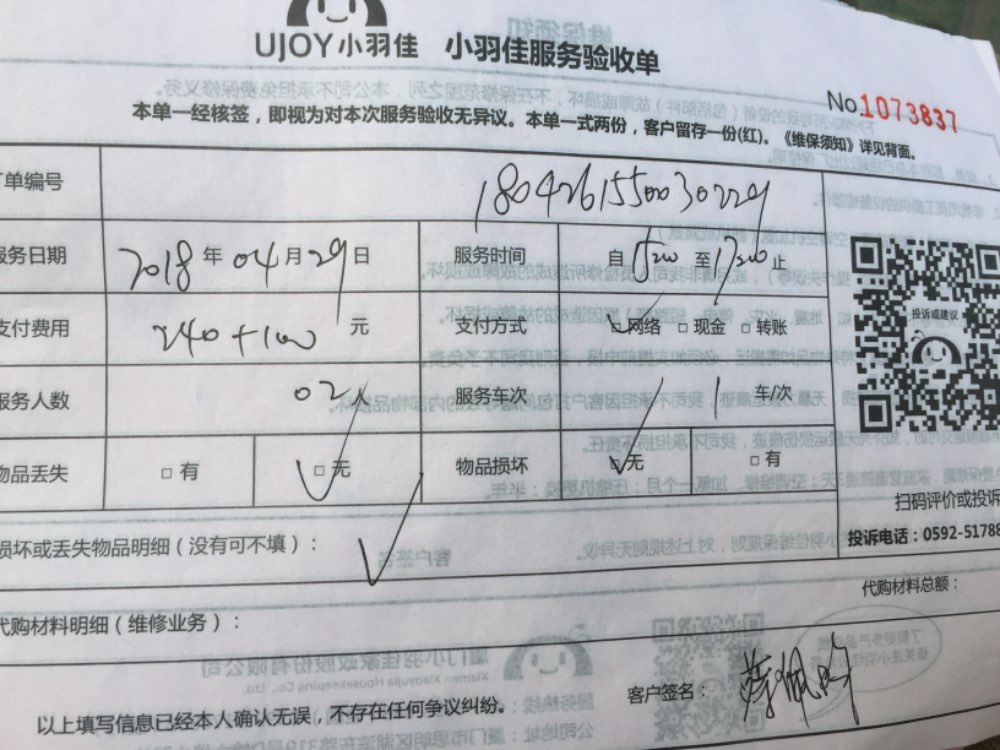 UJOY小羽佳 小羽佳服务验收单
No.1073837
本单一经核签，即视为对本次服务验收无异议。本单一式两份，客户留存一份(红)。《维保须知》详见背面。
单编号 1804261550030229
服务日期 2018年04月29日 服务时间 自1500至1700止
支付费用 240+100元 支付方式 网络 □现金 □转账
投诉或建议
服务人数 02 服务车次 1 车/次
物品丢失 □有 □无 物品损坏 □无 □有
扫码评价或投诉
损坏或丢失物品明细（没有可不填）：
投诉电话：0592-51788
代购材料总额：
代购材料明细（维修业务）：
客户签名：
以上填写信息已经本人确认无误，不存在任何争议纠纷。